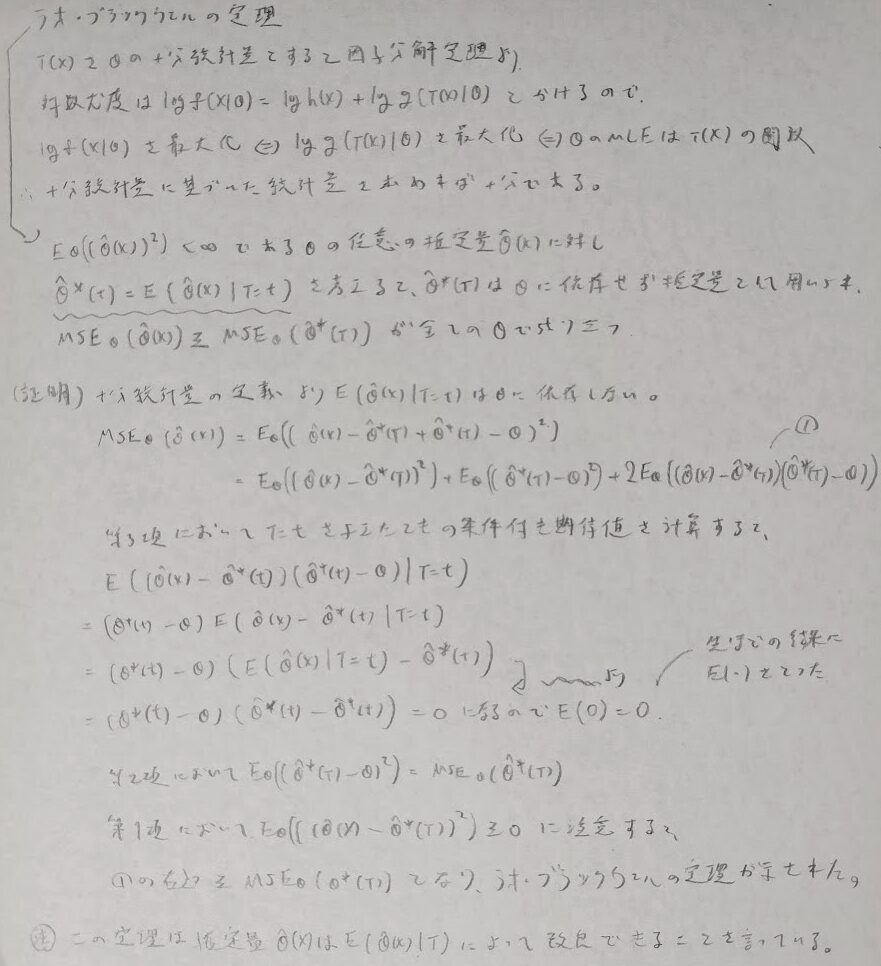 ラオ・ブラックウェルの定理
T(X)をθの十分統計量とすると因子分解定理より
対数尤度は log f(x|θ) = log h(x) + log g(T(x)|θ) とかけるので、
log f(x|θ) を最大化 ⇔ log g(T(x)|θ) を最大化 ⇔ θのMLEはT(x)の関数
∴ 十分統計量に基づいた統計量を求めれば十分である。
Eθ((θ̂(x))²) < ∞ である θ の任意の推定量 θ̂(x) に対し
θ̂*(t) = E(θ̂(x)|T=t) を考えると、θ̂*(T) は θ に依存せず推定量として用いられ、
MSEθ(θ̂(x)) ≧ MSEθ(θ̂*(T)) が全てのθで成り立つ
(証明) 十分統計量の定義より E(θ̂(x)|T=t) はθに依存しない。
MSEθ(θ̂(x)) = Eθ((θ̂(x) - θ̂*(T) + θ̂*(T) - θ)²)
①
= Eθ((θ̂(x) - θ̂*(T))²) + Eθ((θ̂*(T) - θ)²) + 2Eθ((θ̂(x) - θ̂*(T))(θ̂*(T) - θ))
第3項において T=t を与えたときの条件付き期待値を計算すると、
E((θ̂(x) - θ̂*(t))(θ̂*(t) - θ)|T=t)
= (θ*(t) - θ) E(θ̂(x) - θ̂*(t)|T=t)
= (θ*(t) - θ)(E(θ̂(x)|T=t) - θ̂*(t))
より
先ほどの結果に
E(・)をとった
= (θ*(t) - θ)(θ̂*(t) - θ̂*(t)) = 0 になるので E(0) = 0.
第2項において Eθ((θ̂*(T) - θ)²) = MSEθ(θ̂*(T))
第1項において Eθ((θ̂(x) - θ̂*(T))²) ≧ 0 に注意すると、
①の右辺 ≧ MSEθ(θ*(T)) となり、ラオ・ブラックウェルの定理が示された。
注 この定理は推定量 θ̂(x) は E(θ̂(x)|T) によって改良できることを言っている。